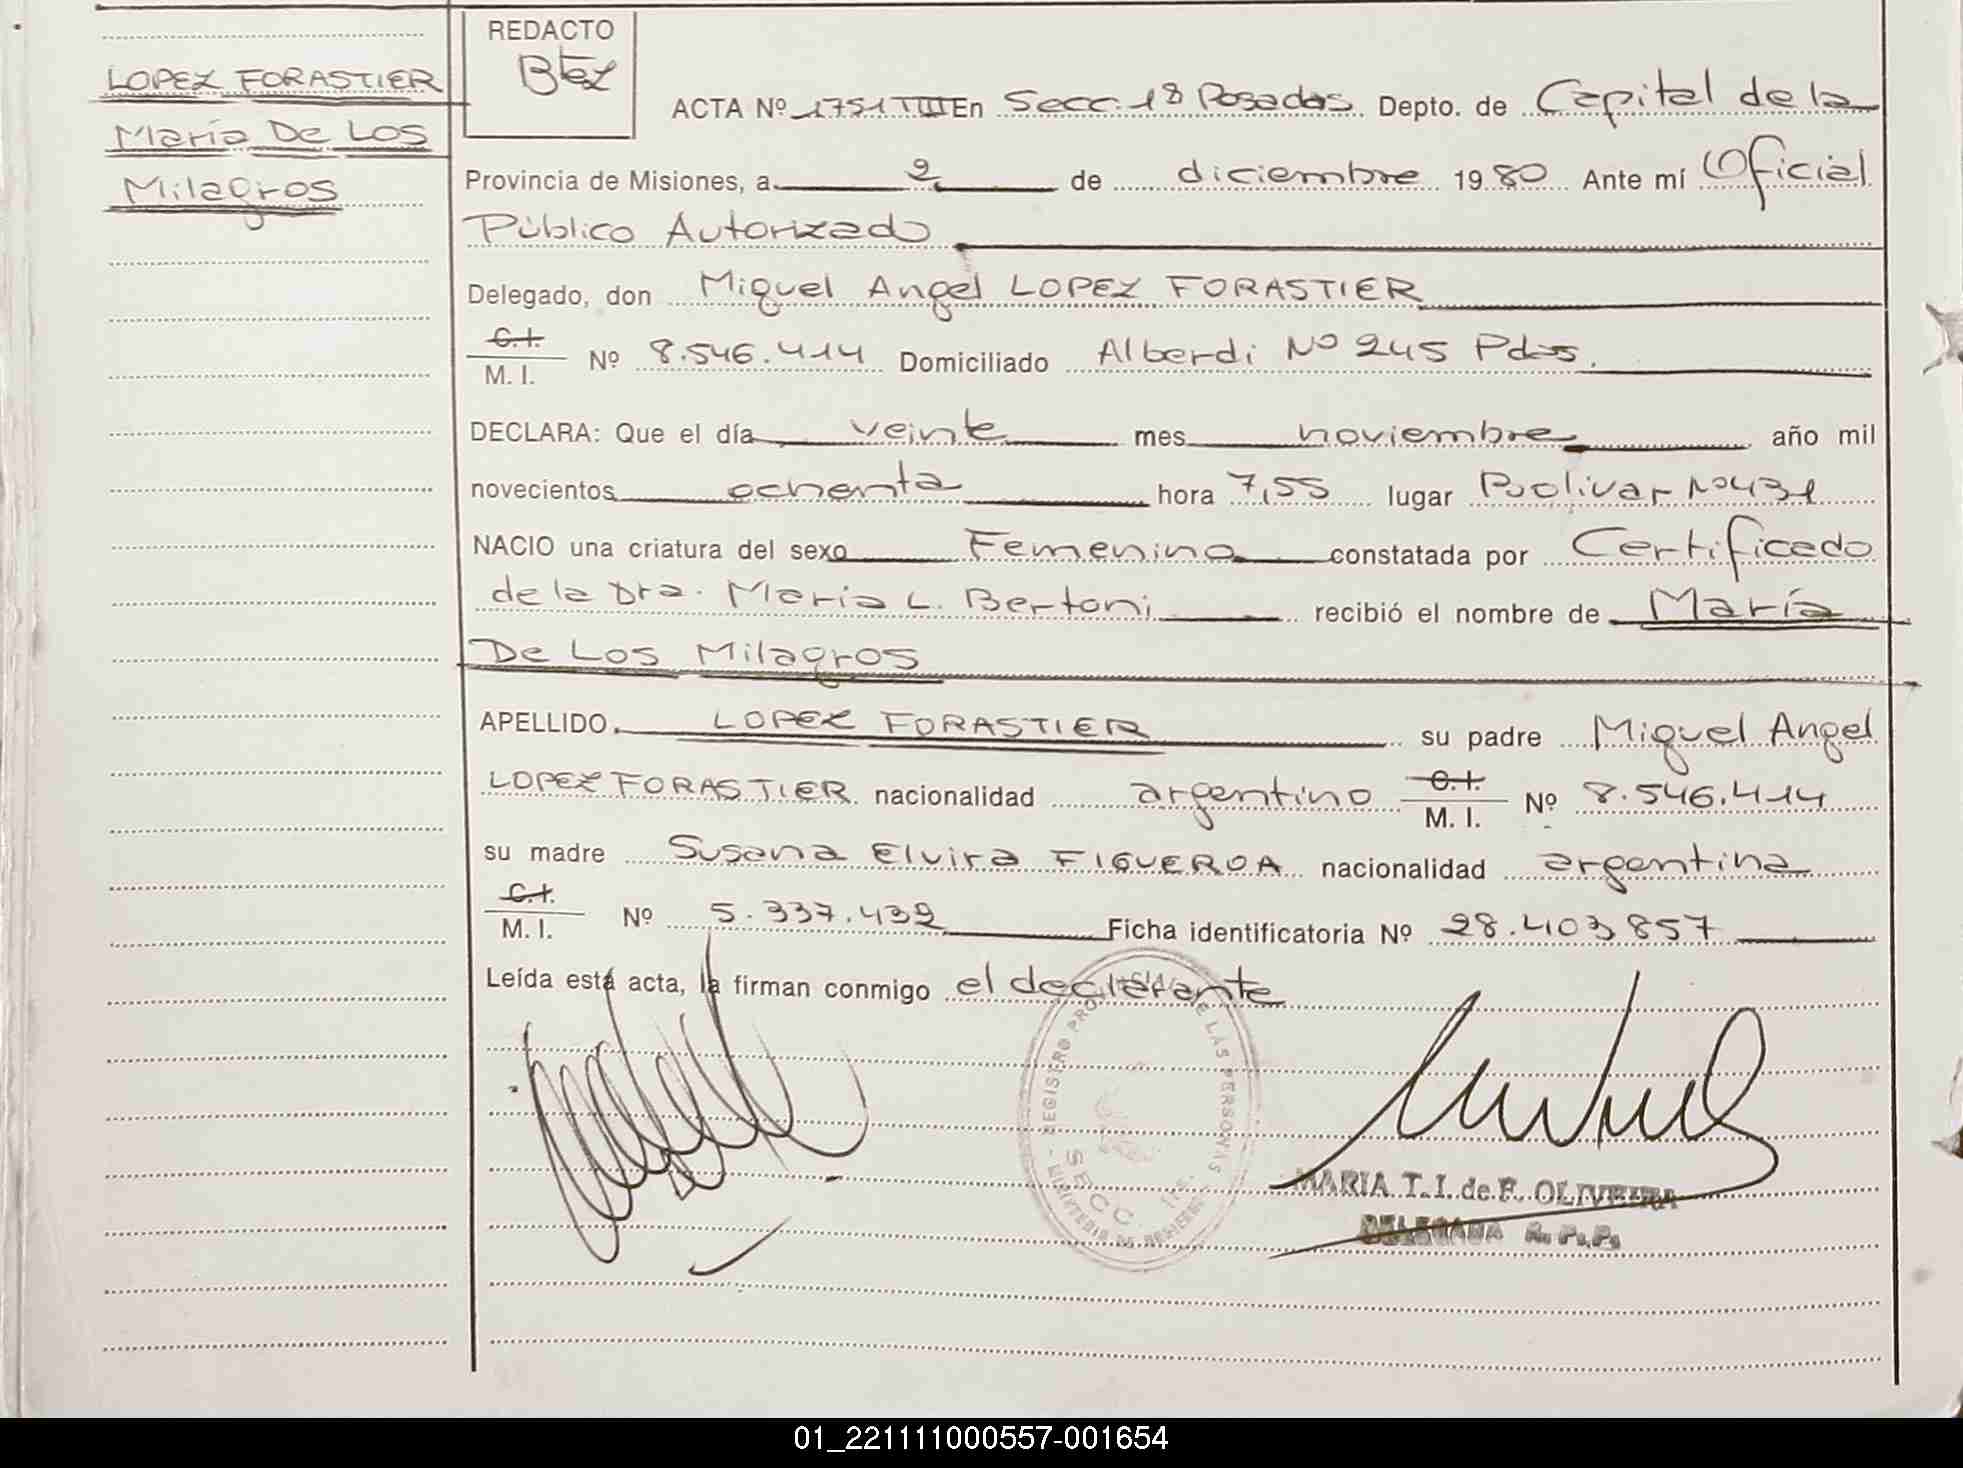 LOPEZ FORASTIER
María De Los
Milagros
REDACTO
Btez
ACTA Nº 1751 TIII En Secc. 1ª Posadas. Depto. de Capital de la
Provincia de Misiones, a 2 de diciembre 1980 Ante mí Oficial
Público Autorizado
Delegado, don Miguel Angel LOPEZ FORASTIER
C.I.
M. I. Nº 8.546.414 Domiciliado Alberdi Nº 245 Pdas.
DECLARA: Que el día veinte mes noviembre año mil
novecientos ochenta hora 7,55 lugar Bolivar Nº 431
NACIO una criatura del sexo Femenino constatada por Certificado
de la Dra. Maria L. Bertoni recibió el nombre de María
De Los Milagros
APELLIDO LOPEZ FORASTIER su padre Miguel Angel
LOPEZ FORASTIER nacionalidad argentino C.I.
M. I. Nº 8.546.414
su madre Susana Elvira FIGUEROA nacionalidad argentina
C.I.
M. I. Nº 5.337.439 Ficha identificatoria Nº 28.403.857
Leída está acta, la firman conmigo el declarante
REGISTRO PROVINCIAL DE LAS PERSONAS
SECC. 1ra.
MARIA T. I. de F. OLIVEIRA
DELEGADA R. P. P.
01_221111000557-001654